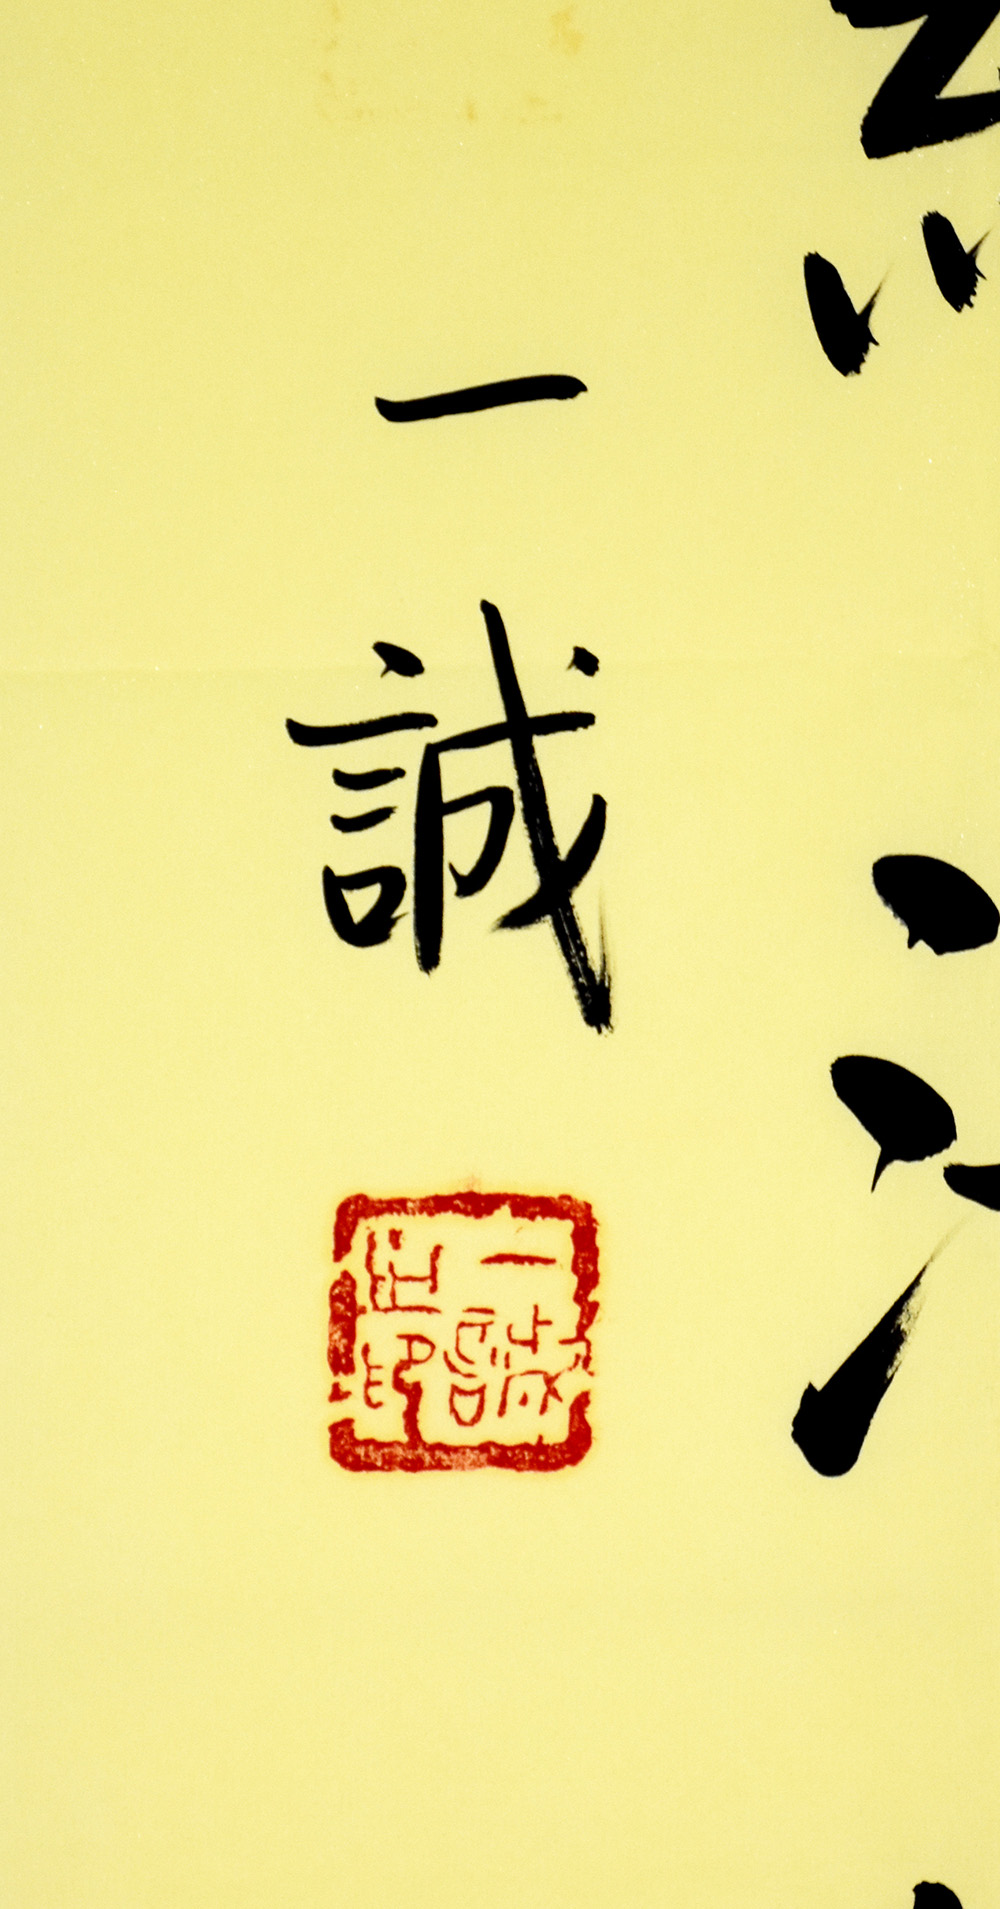 一誠
一誠之印